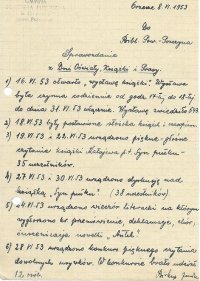 Czersk 8.VI.1953
Do
Bibl. Pow. Pow.
Sprawozdanie
z Dni Oświaty, Książki i Prasy.
1) 16.VI.53 otwarto „wystawę książki". Wystawa
była czynna codziennie od godz. 14-tej, do 18-tej
do dnia 31.VI.53 włącznie. Wystawę zwiedziło
2) 18.VI.53 były postawione stoiska książki i
3) 19.VI.53 i 22.VI.53 urządzono piękne-głośne
czytanie książki Katajewa p.t. Syn pułku -
35 uczestników.
4) 27.VI.53 i 30.VI.53 urządzono dyskusję nad
książką „Syn pułku" (38 uczestników)
5) urządzono wieczór literacki na którym
wygłoszono kr. przemówienie, deklamacje, chór,
inscenizację noweli „Antek".
6) 28.VI.53 urządzono konkurs pięknego czytania
dowolnych urywków. W konkursie brało udział
12 osób.